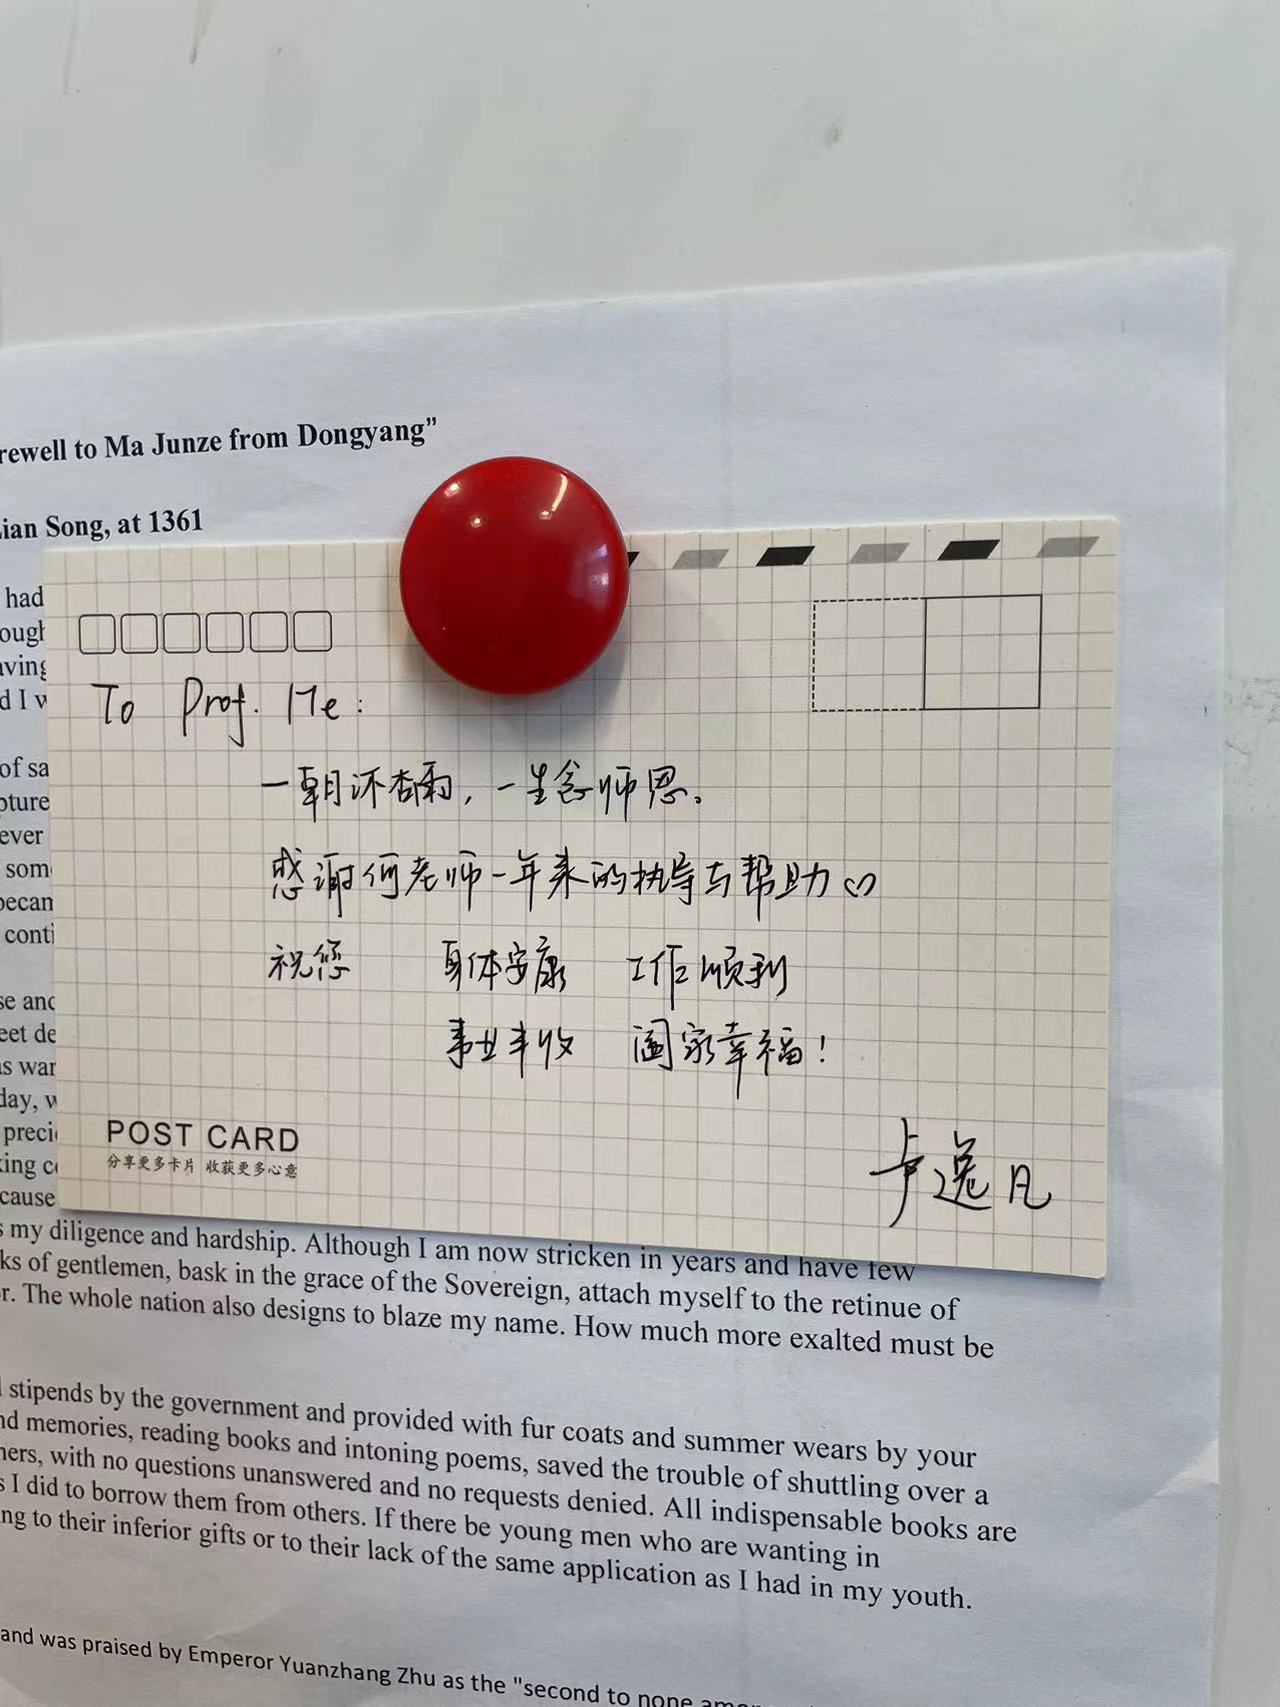 rewell to Ma Junze from Dongyang”
Lian Song, at 1361
had
d I w
of sa
ever
som
becan
conti
se and
eet de
as war
day, w
preci
king co
cause
To Prof. He:
一朝沐杏雨，一生念师恩。
感谢何老师一年来的执导与帮助♡
祝您 身体安康 工作顺利
事业丰收 阖家幸福！
POST CARD
分享更多卡片 收获更多心意
逸凡
s my diligence and hardship. Although I am now stricken in years and have few
ks of gentlemen, bask in the grace of the Sovereign, attach myself to the retinue of
r. The whole nation also designs to blaze my name. How much more exalted must be
l stipends by the government and provided with fur coats and summer wears by your
nd memories, reading books and intoning poems, saved the trouble of shuttling over a
hers, with no questions unanswered and no requests denied. All indispensable books are
s I did to borrow them from others. If there be young men who are wanting in
ng to their inferior gifts or to their lack of the same application as I had in my youth.
and was praised by Emperor Yuanzhang Zhu as the "second to none among